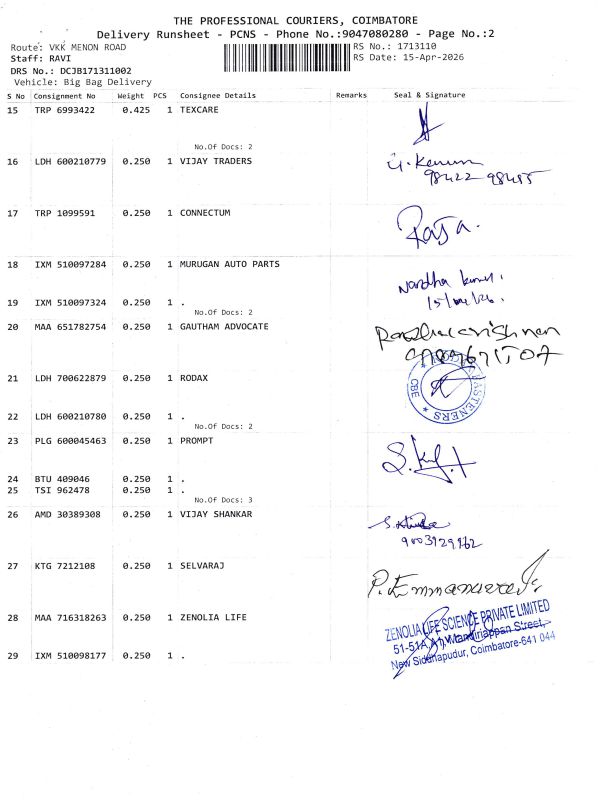 THE PROFESSIONAL COURIERS, COIMBATORE
Delivery Runsheet - PCNS - Phone No.:9047080280 - Page No.:2
Route: VKK MENON ROAD RS No.: 1713110
Staff: RAVI RS Date: 15-Apr-2026
DRS No.: DCJB171311002
Vehicle: Big Bag Delivery
S No Consignment No Weight PCS Consignee Details Remarks Seal & Signature
15 TRP 6993422 0.425 1 TEXCARE
No.Of Docs: 2
16 LDH 600210779 0.250 1 VIJAY TRADERS
98422 98455
17 TRP 1099591 0.250 1 CONNECTUM
Raja.
18 IXM 510097284 0.250 1 MURUGAN AUTO PARTS
Nandha kumar.
15/04/26.
19 IXM 510097324 0.250 1 .
No.Of Docs: 2
20 MAA 651782754 0.250 1 GAUTHAM ADVOCATE
21 LDH 700622879 0.250 1 RODAX
CBE
FASTENERS
22 LDH 600210780 0.250 1 .
No.Of Docs: 2
23 PLG 600045463 0.250 1 PROMPT
24 BTU 409046 0.250 1 .
25 TSI 962478 0.250 1 .
No.Of Docs: 3
26 AMD 30389308 0.250 1 VIJAY SHANKAR
9003929962
27 KTG 7212108 0.250 1 SELVARAJ
28 MAA 716318263 0.250 1 ZENOLIA LIFE
ZENOLIA LIFE SCIENCE PRIVATE LIMITED
51-51A, Street,
New Siddhapudur, Coimbatore-641 044
29 IXM 510098177 0.250 1 .